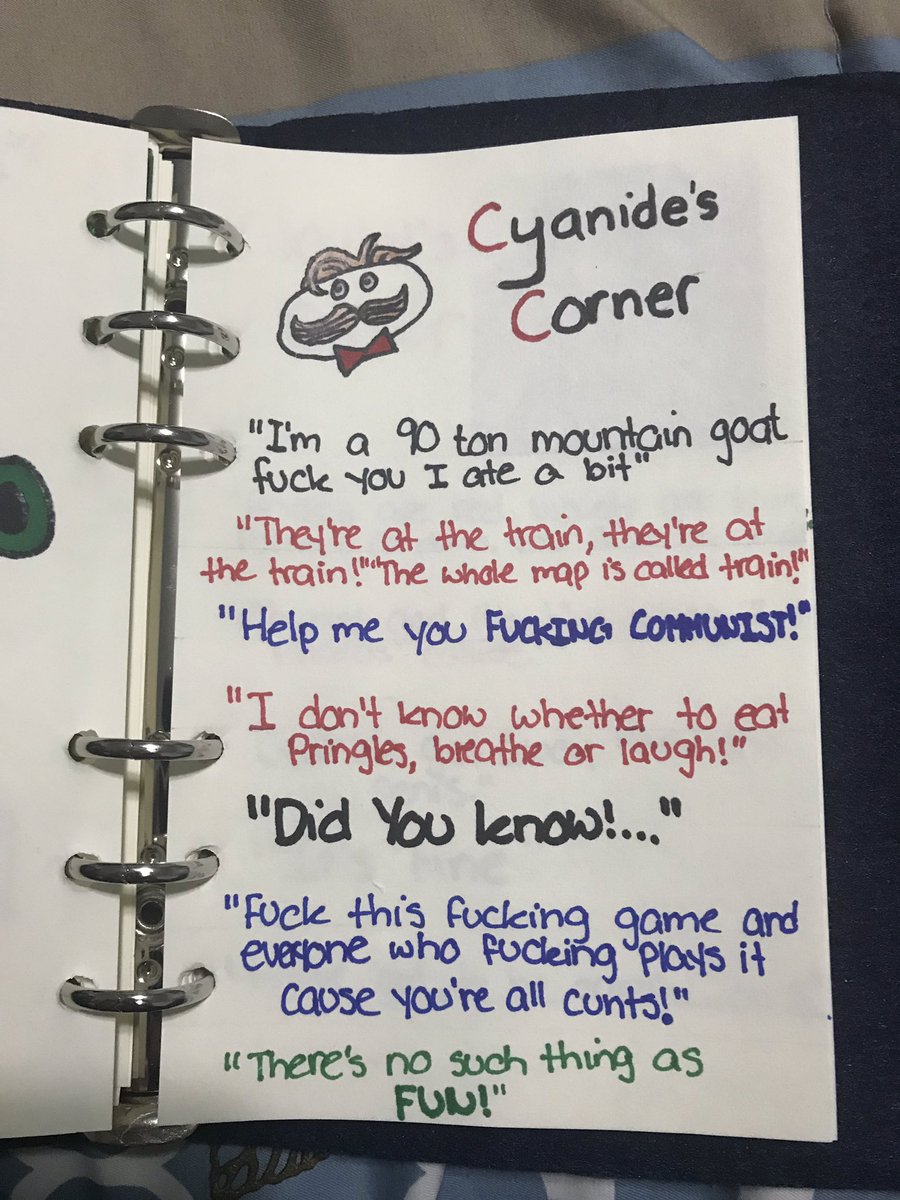 Cyanide's
Corner
"I'm a 90 ton mountain goat
fuck you I ate a bit"
"They're at the train, they're at
the train!" "The whole map is called train!"
"Help me you FUCKING COMMUNIST!"
"I don't know whether to eat
Pringles, breathe or laugh!"
"Did You know!..."
"Fuck this fucking game and
everyone who fucking plays it
cause you're all cunts!"
"There's no such thing as
FUN!"